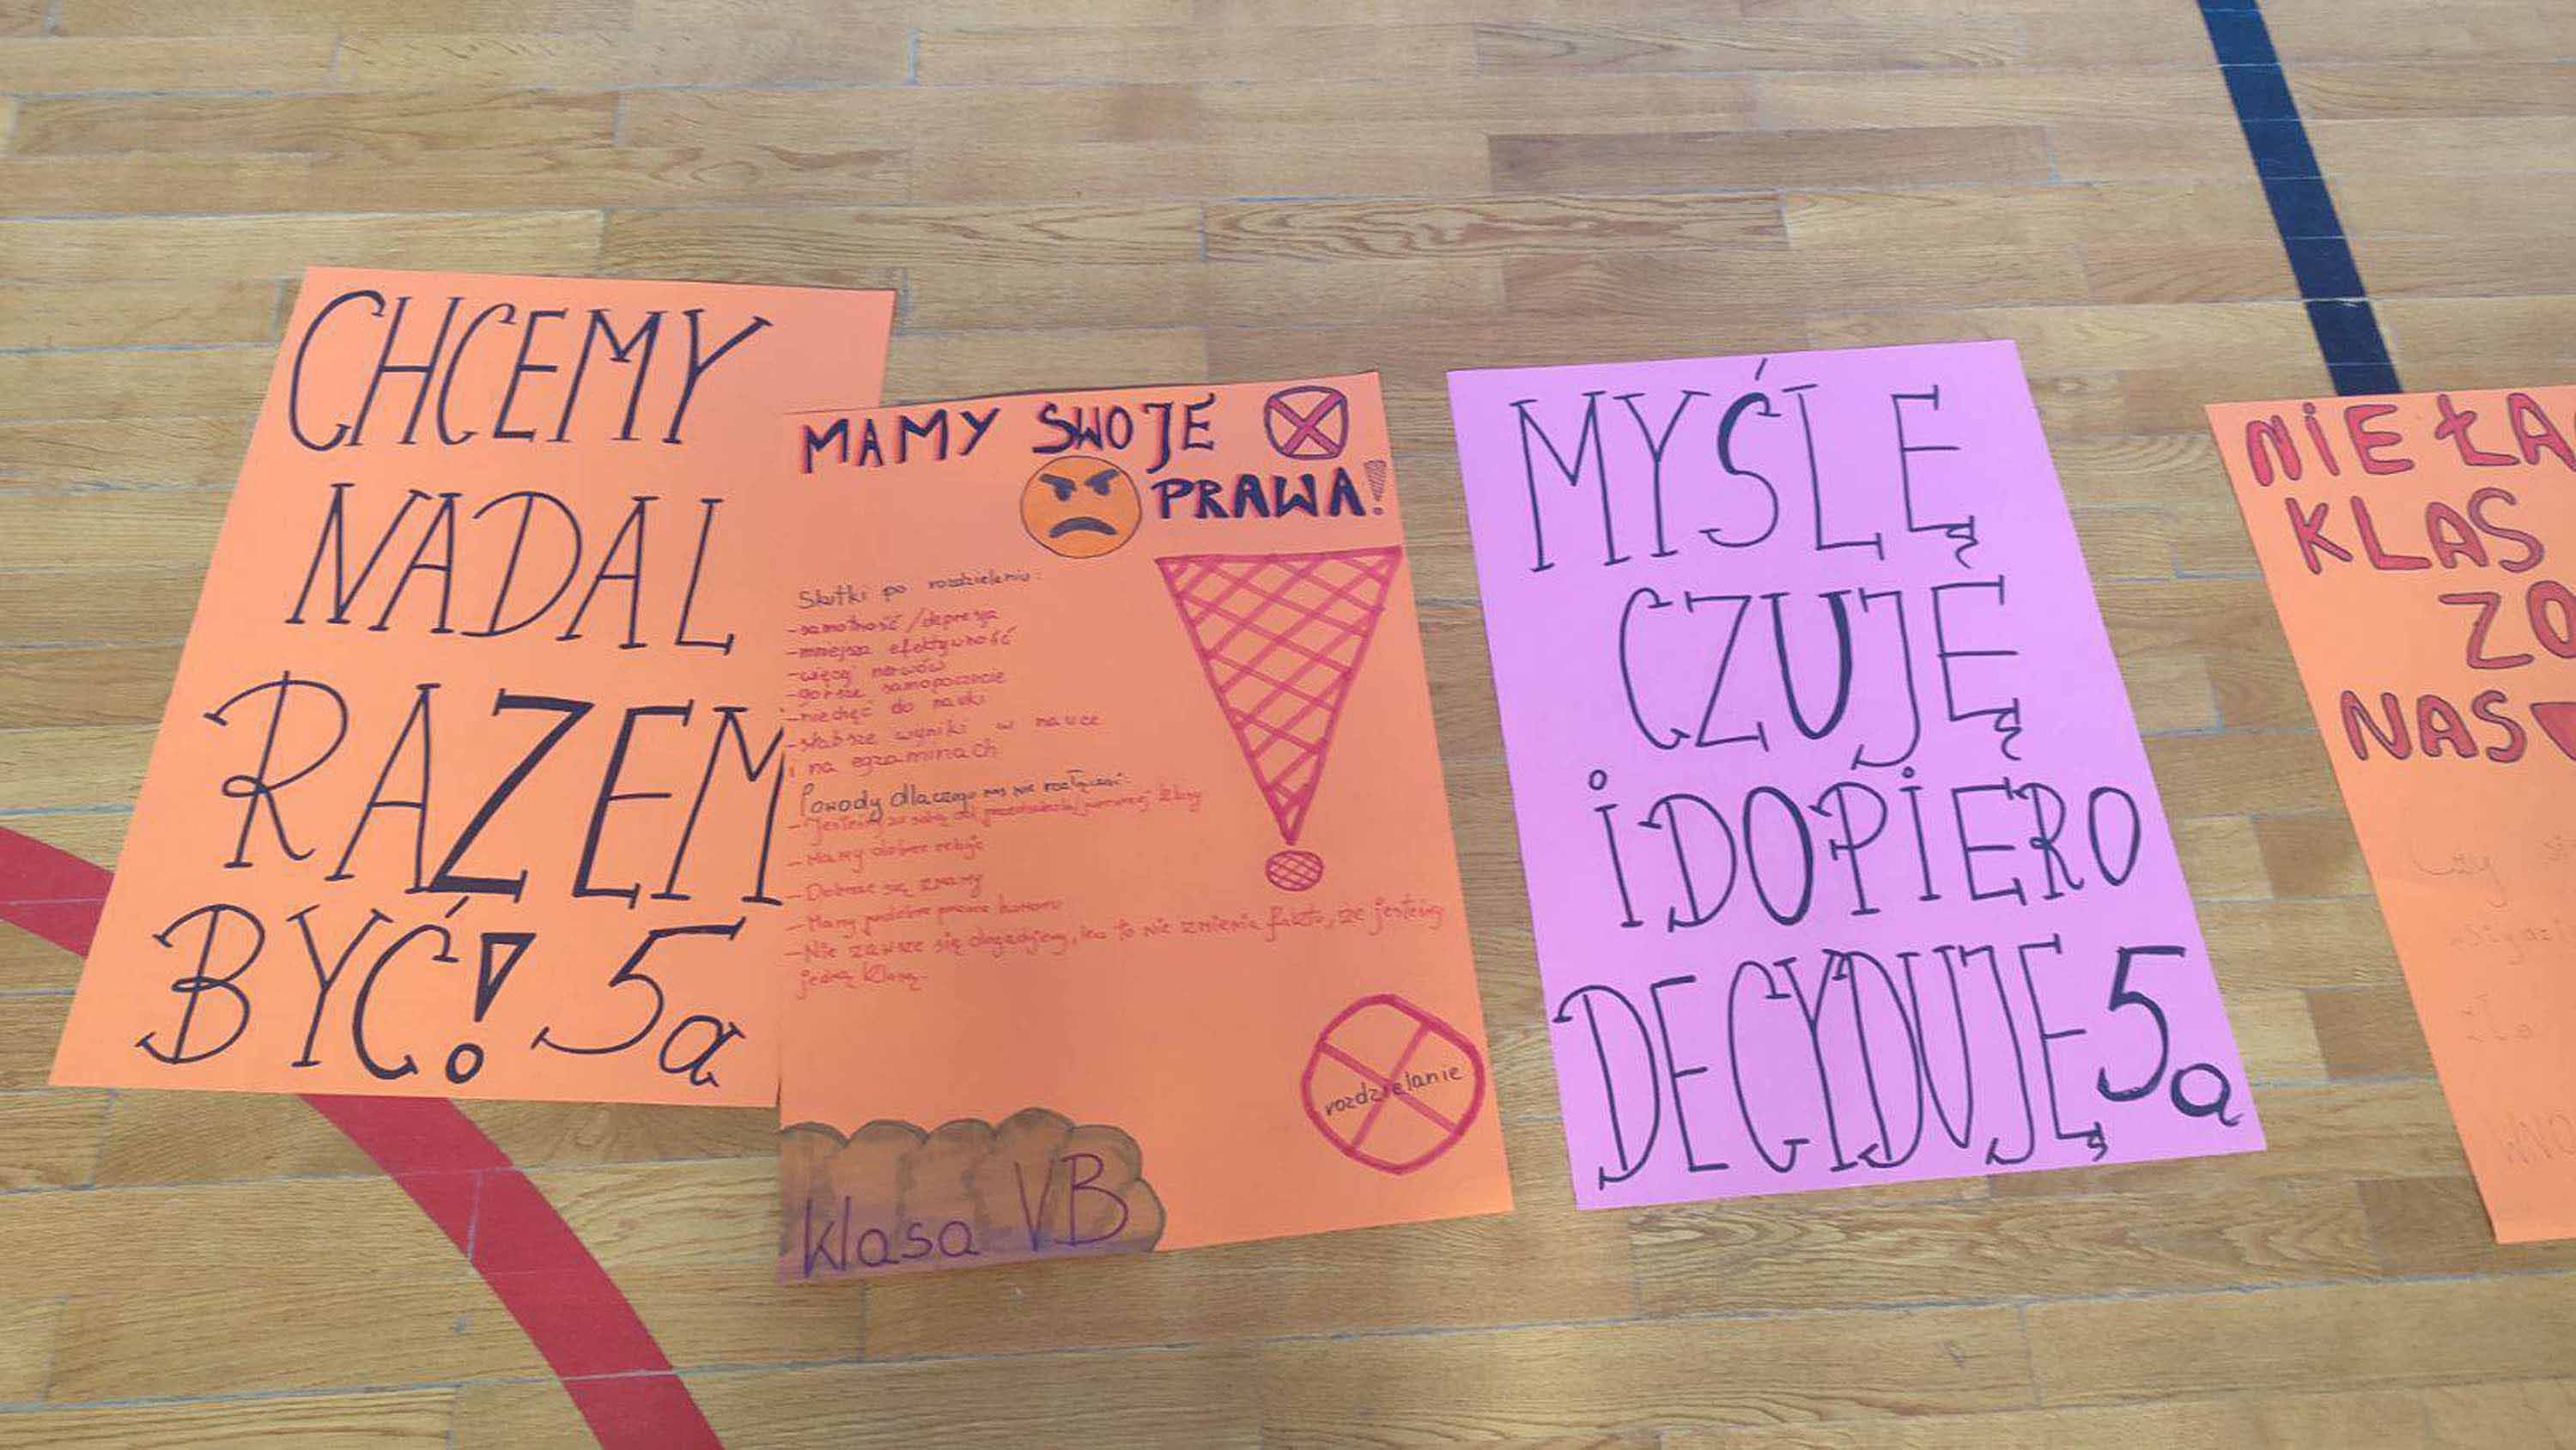 CHCEMY
NADAL
RAZEM
BYĆ! 5a
MAMY SWOJE
PRAWA!
Skutki po rozdzieleniu:
-samotność/depresja
-mniejsza efektywność
-więcej nerwów
-gorsze samopoczucie
-niechęć do nauki
-słabsze wyniki w nauce
i na egzaminach
Powody dlaczego nas nie rozłączać:
- Jesteśmy ze sobą od
- Mamy dobre relacje
- Dobrze się znamy
- Mamy podobne poczucie humoru
- Nie zawsze się dogadujemy, lecz to nie zmienia faktu, że jesteśmy
jedną klasą.
rozdzielanie
klasa VB
MYŚLĘ
CZUJĘ
i DOPIERO
DECYDUJĘ 5a
NIE ŁA
KLAS
ZO
NAS